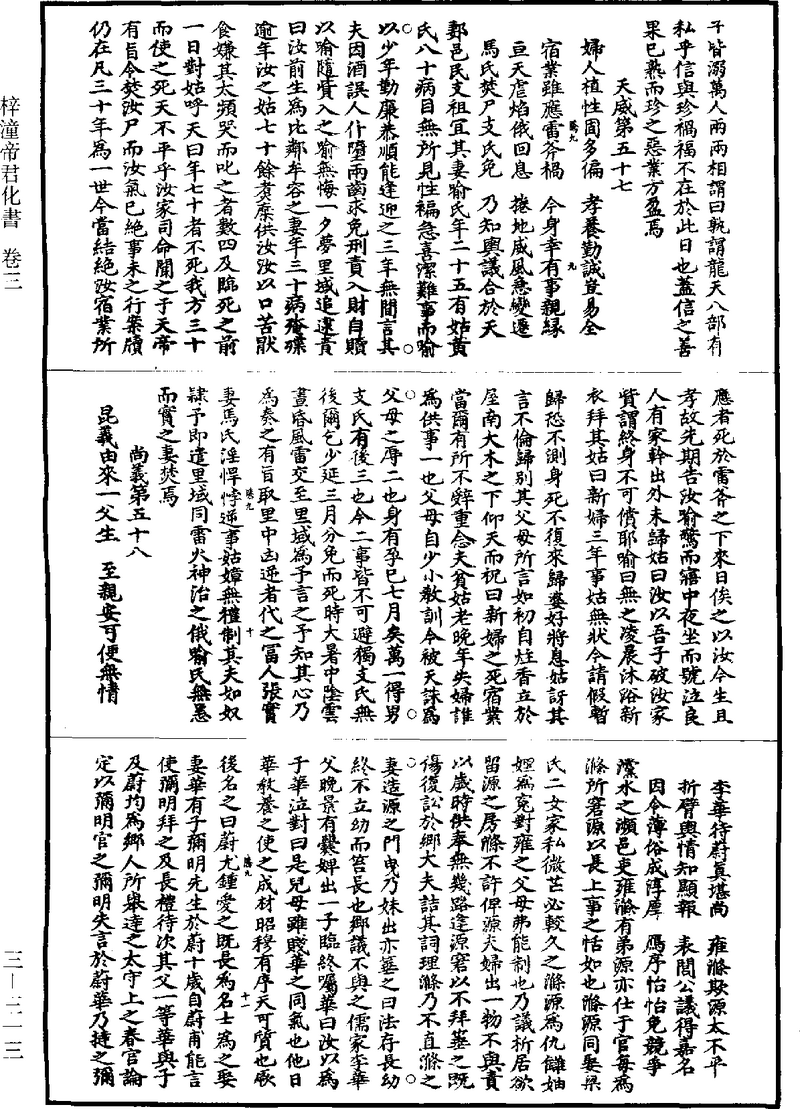 子皆溺萬人兩兩相謂曰孰謂龍天八部有
私乎信與珍禍福不在於此日也蓋信之善
果已熟而珍之惡業方盈焉
天威第五十七
婦人植性固多偏　孝養勤誠豈易全
宿業雖應雷斧禍　今身幸有事親緣
亘天虐焰俄回息　捲地威風急變遷
馬氏焚尸支氏免　乃知輿議合於天
鄄邑民支祖宜其妻喻氏年二十五有姑黃
氏八十病目無所見性褊急喜潔難事而喻
以少年勤廉恭順能逢迎之三年無間言其
夫因酒誤人仆墮兩齒求免刑責入財自贖
以喻隨貲入之喻無悔一夕夢里域追逮責
曰汝前生為比鄰牟容之妻年三十病殗殜
逾年汝之姑七十餘煮糜供汝汝以口苦厭
食嫌其太頻哭而叱之者數四及臨死之前
一日對姑呼天曰年七十者不死我方三十
而使之死天不平乎汝家司命聞之于天帝
有旨令焚汝尸而汝氣已絕事未之行案牘
仍在凡三十年為一世今當結絕汝宿業所
應者死於雷斧之下來日俟之以汝今生且
孝故先期告汝喻驚而寤中夜坐而號泣良
人有家幹出外未歸姑曰汝以吾子破汝家
貲謂終身不可償耶喻曰無之凌晨沐浴新
衣拜其姑曰新婦三年事姑無狀今請假暫
歸恐不測身死不復來歸婆好將息姑訝其
言不倫歸別其父母所言如初自炷香立於
屋南大木之下仰天而祝曰新婦之死宿業
當爾有所不辭重念夫貧姑老晚年失婦誰
為供事一也父母自少小教訓今被天誅為
父母之辱二也身有孕已七月矣萬一得男
支氏有後三也今二事皆不可避獨支氏無
後爾乞少延三月分免而死時大暑中陰雲
晝昏風雷交至里域為予言之予知其心乃
為奏之有旨取里中凶逆者代之冨人張實
妻馬氏淫悍悖逆事姑嫜無禮制其夫如奴
隸予即遣里域同雷火神治之俄喻氏無恙
而實之妻焚焉
尚義第五十八
昆義由來一父生　至親安可便無情
李華待蔚真堪尚　雍滌欺源太不平
折臂輿情知顯報　表閭公議得嘉名
因令薄俗成淳厚　鴈序怡怡免競爭
濛水之瀕邑吏雍滌有弟源亦仕于官每為
滌所窘源以長上事之恬如也滌源同娶梁
氏二女家私微茫必較久之滌源為仇讎妯
娌為寃對雍之父母弗能制也乃議析居欲
留源之房滌不許俾源夫婦出一物不與責
以歲時供奉無幾路逢源窘以不拜箠之既
傷復訟於鄉大夫詰其詞理滌乃不直滌之
妻造源之門曳乃妹出亦箠之曰法存長幼
終不立幼而笞長也鄉議不與之儒家李華
父晚景有爨婢出一子臨終囑華曰汝以為
子華泣對曰是兒母雖賤華之同氣也他日
華教養之使之成材昭穆有序天可質也厥
後名之曰蔚尤鍾愛之既長為名士為之娶
妻華有子彌明先生於蔚十歲自蔚甫能言
使彌明拜之及長禮待次其父一等華與子
及蔚均為鄉人所舉達之太守上之春官論
定以彌明官之彌明失言於蔚華乃撻之彌
梓潼帝君化書　卷三
三—三一三